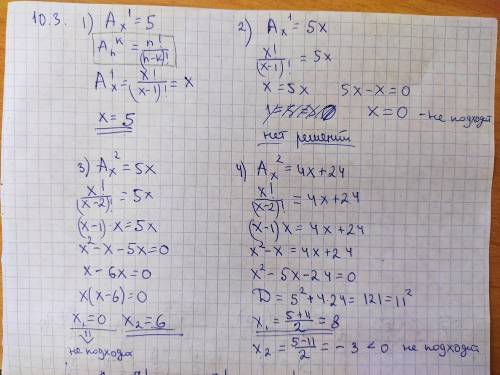 10.3. 1) Aₓ¹ = 5
Aₙᵏ = n! / (n-k)!
Aₓ¹ = x! / (x-1)! = x
x = 5
2) Aₓ¹ = 5x
x! / (x-1)! = 5x
x = 5x 5x - x = 0
x = 0 - не подходит
нет решений
3) Aₓ² = 5x
x! / (x-2)! = 5x
(x-1) x = 5x
x² - x - 5x = 0
x - 6x = 0
x(x-6) = 0
x₁ = 0 x₂ = 6
не подходит
4) Aₓ² = 4x + 24
x! / (x-2)! = 4x + 24
(x-1) x = 4x + 24
x² - x = 4x + 24
x² - 5x - 24 = 0
D = 5² + 4·24 = 121 = 11²
x₁ = (5+11)/2 = 8
x₂ = (5-11)/2 = -3 < 0 не подходит